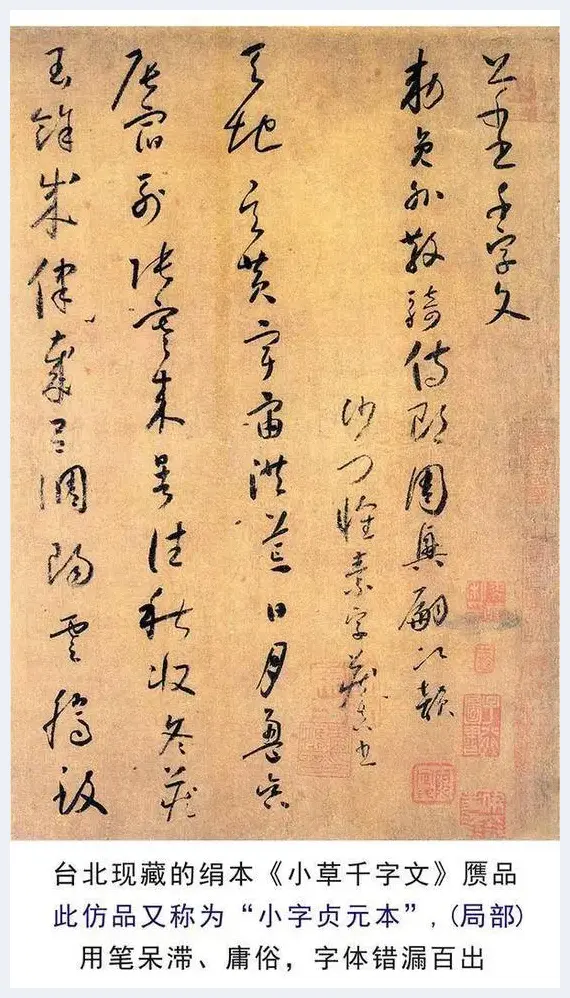 千字文
勅員外散騎侍郎周興嗣次韻
沙門懷素字藏真書
天地玄黃宇宙洪荒日月盈昃
辰宿列張寒來暑往秋收冬藏
閏餘成律歲呂調陽雲騰致
台北现藏的绢本《小草千字文》赝品
此仿品又称为“小字贞元本”,(局部)
用笔呆滞、庸俗，字体错漏百出